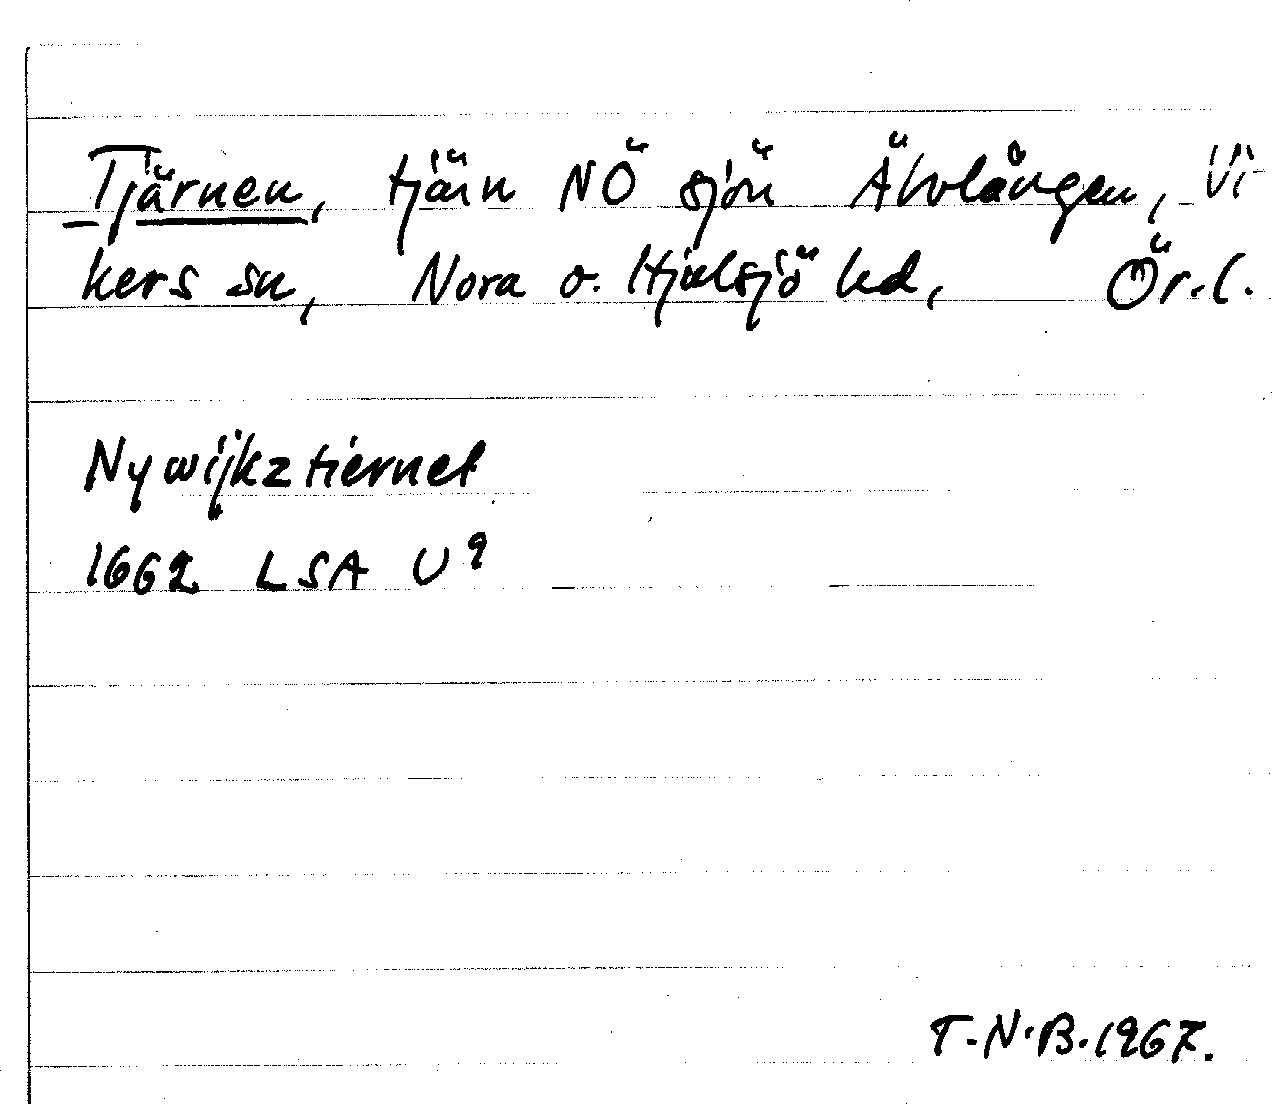 Tjärnen, tjärn NÖ sjön Älvlången, Vi-
kers sn, Nora o. Hjulsjö hd, Ör.l.
Nywijkztiernet
1662 LSA U9
T.N.B. 1967.